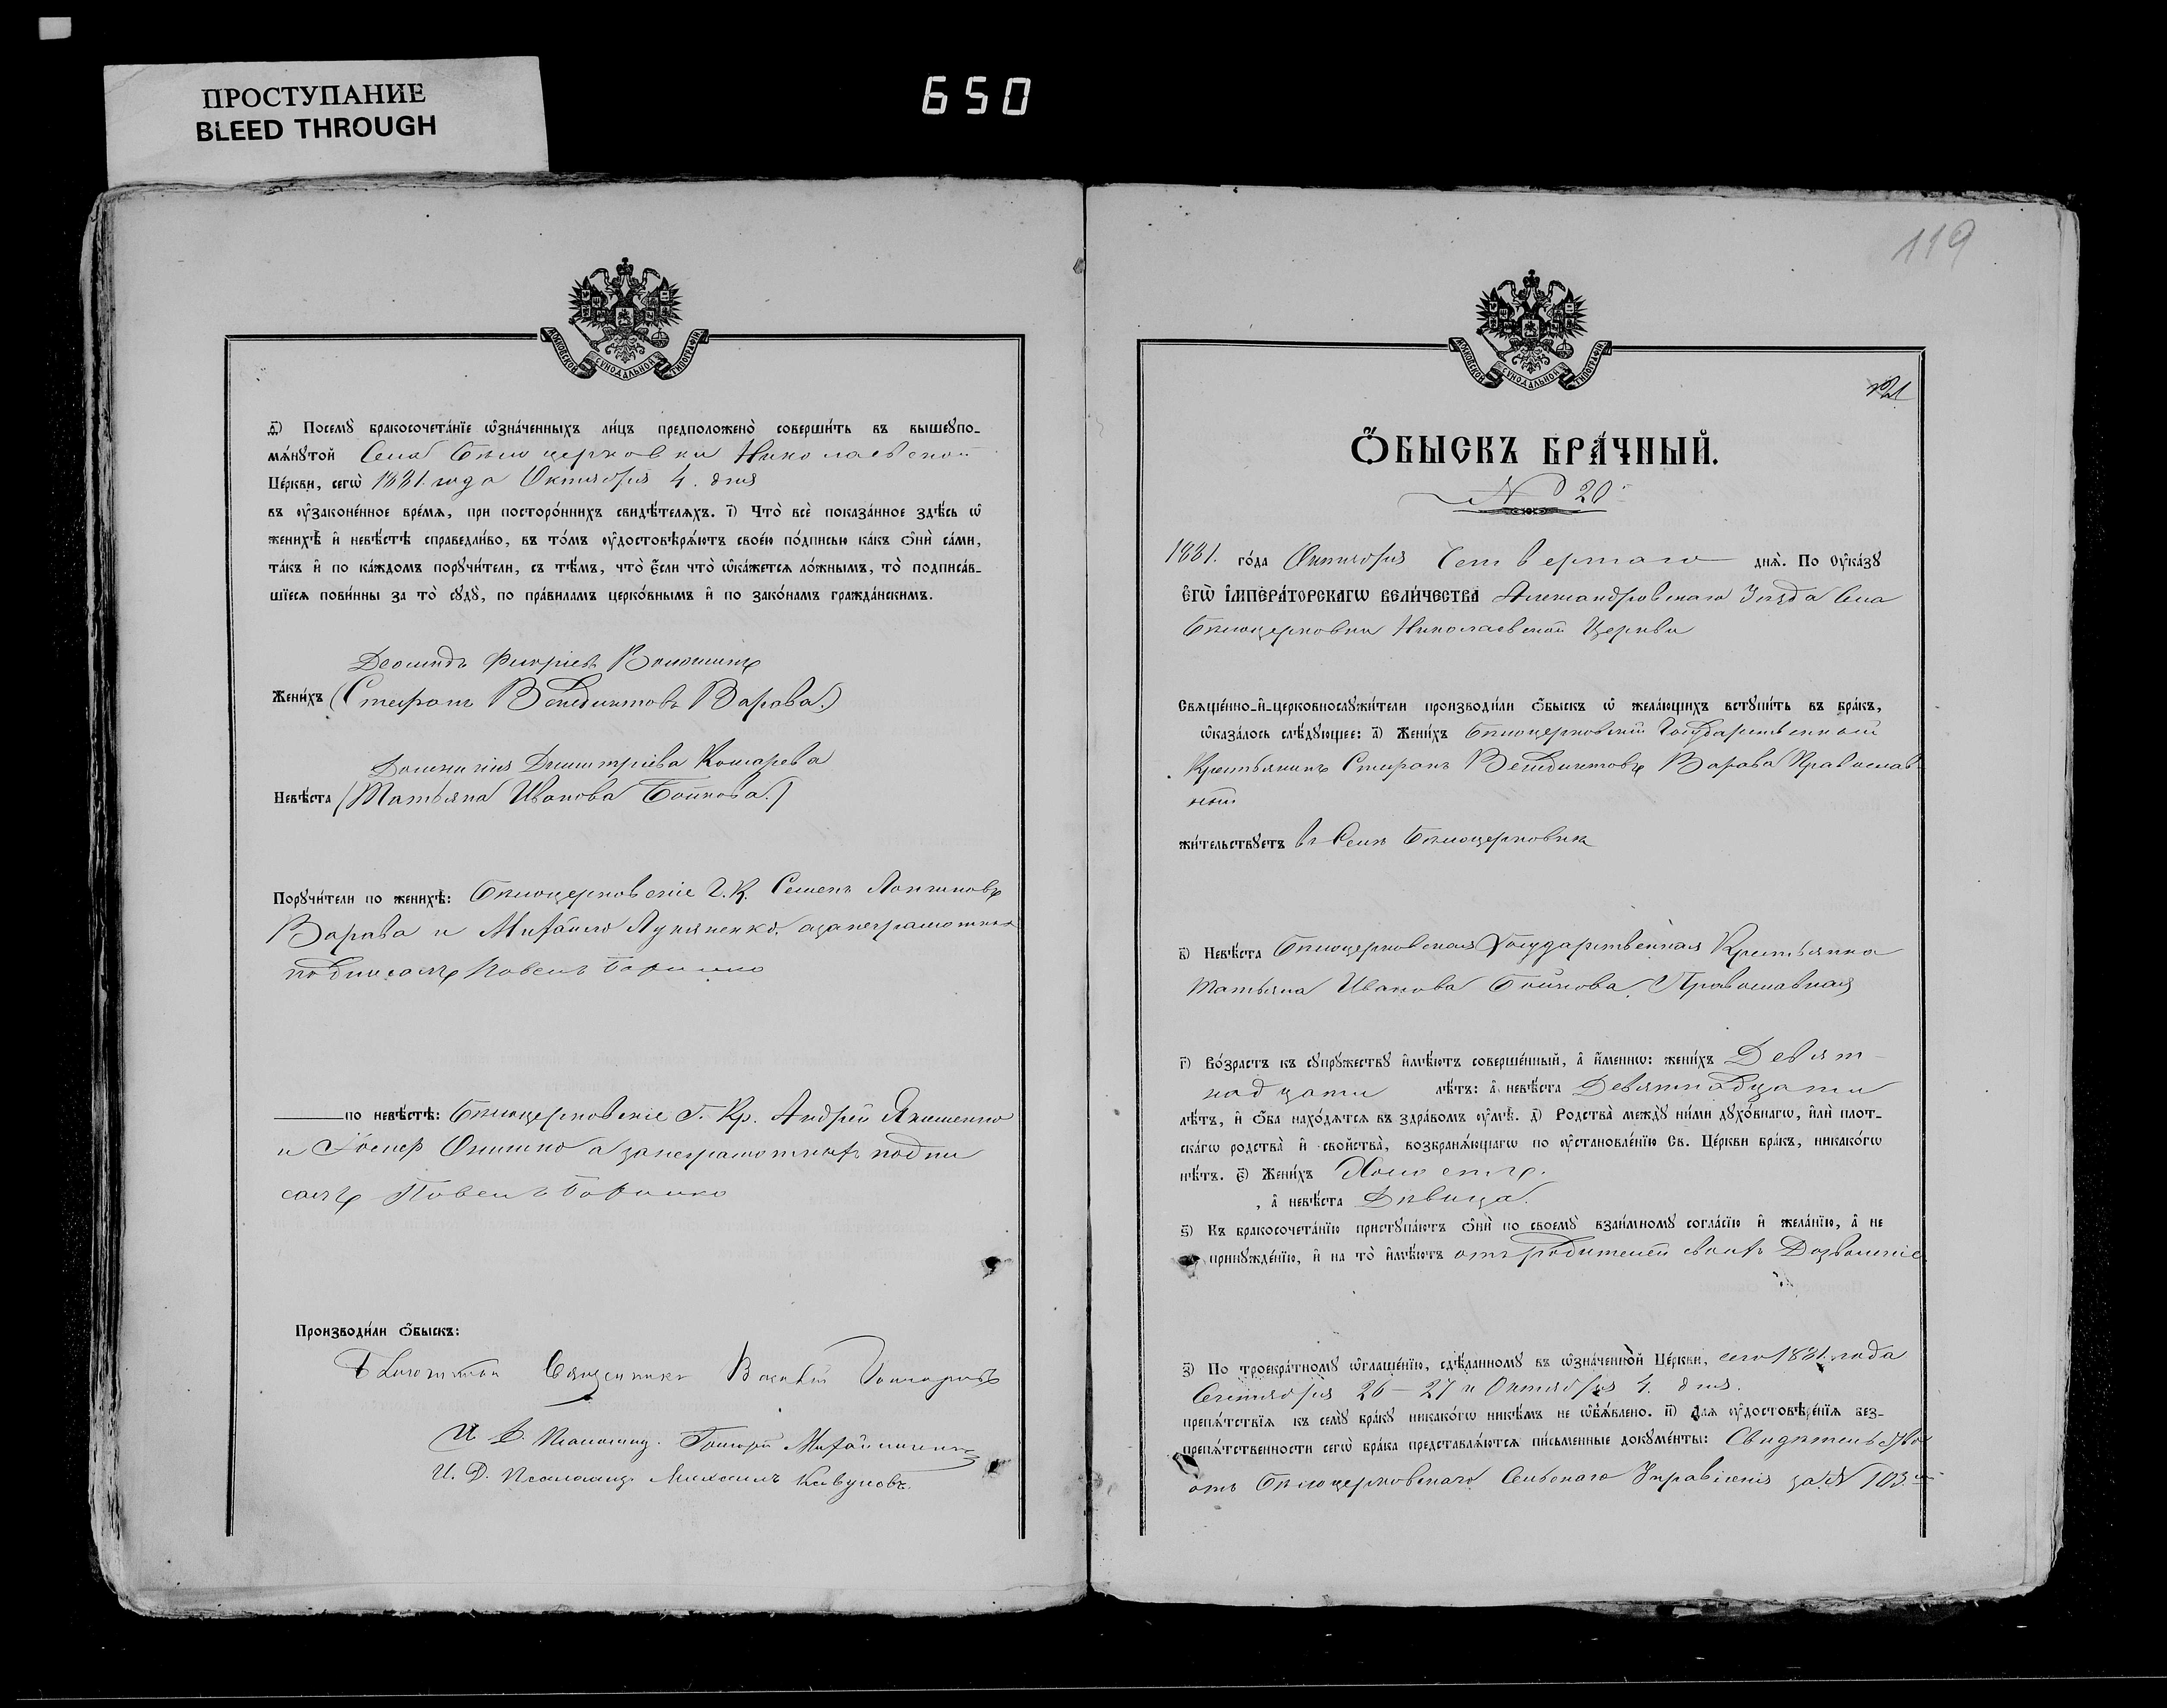 ПРОСТУПАНИЕ
BLEED THROUGH
650
МОСКОВСКОЙ СѴНОДАЛЬНОЙ ТИПОГРАФІИ
Посемꙋ̀ бракосочета́нїе ѡ҆зна́ченныхъ ли́цъ предположено̀ соверши́ть въ вышеꙋпо-
мѧ́нꙋтой Села Бѣлоцерковки Николаевской
Це́ркви, сегѡ̀ 1881. года Октября 4. дня
въ ᲂу҆законе́нное вре́мѧ, при посторо́ннихъ свидѣ́телѧхъ. і҃) Что̀ всѐ показа́нное здѣ́сь ѡ҆
женихѣ̀ и҆ невѣ́стѣ справедли́во, въ то́мъ ᲂу҆достовѣрѧ́ютъ свое́ю по́дписью ка́къ ѻ҆нѝ са́ми,
та́къ и҆ по ка́ждомъ порꙋчи́тели, съ тѣ́мъ, что̀ є҆́сли что̀ ѡ҆ка́жетсѧ ло́жнымъ, то̀ подписа́в-
шїесѧ пови́нны за то̀ сꙋдꙋ̀, по пра́виламъ церко́внымъ и҆ по зако́намъ гражда́нскимъ.
Волошинъ
Жени́хъ (Стефанъ Венедиктовъ Варава.)
Дмитріева
Невѣ́ста (Татьяна Иванова Бойкова.)
Порꙋчи́тели по женихѣ̀: Бѣлоцерковскіе Г. К. Семенъ
Варава и Михайло Лукяненко. а за неграмотных
подписалъ Павелъ
по невѣ́стѣ: Бѣлоцерковскіе Г. Кр. Андрей Якименко
и Іосиф Онишко а за неграмотныхъ подпи
салъ Павелъ
Производи́ли ѻ҆́быскъ:
Священникъ
И. Д. Псаломщ. Григорій
И. Д. Псаломщ. Михаилъ Кавуновъ.
119
МОСКОВСКОЙ СѴНОДАЛЬНОЙ ТИПОГРАФІИ
Ѻ҆́БЫСКЪ БРА́ЧНЫЙ.
№ 20
1881. го́да Октября Четвертаго днѧ̀. По ᲂу҆ка́зꙋ
Є҆ГѠ̀ І҆МПЕРА́ТОРСКАГѠ ВЕЛИ́ЧЕСТВА Александровскаго Уѣзда Села
Бѣлоцерковки Николаевской Церкви
Свѧще́нно-и҆-церковнослꙋжи́тели производи́ли ѻ҆́быскъ ѡ҆ жела́ющихъ встꙋпи́ть въ бра́къ,
ѡ҆каза́лось слѣ́дꙋющее: а҃) Жени́хъ Бѣлоцерковскій Государственный
Крестьянинъ Стефанъ Венедиктовъ Варава Православ
ный
жи́тельствꙋетъ въ Селѣ Бѣлоцерковкѣ
в҃) Невѣ́ста Бѣлоцерковская Государственная Крестьянка
Татьяна Иванова Бойкова. Православная
г҃) Во́зрастъ къ сꙋпрꙋ́жествꙋ и҆мѣ́ютъ соверше́нный, а҆ и҆́менно: жени́хъ Девят-
надцати лѣ́тъ: а҆ невѣ́ста Девятнадцати
лѣ́тъ, и҆ ѻ҆́ба нахо́дѧтсѧ въ здра́вомъ ᲂу҆мѣ̀. д҃) Родства̀ междꙋ̀ ни́ми дꙋхо́внагѡ, и҆лѝ пло́т-
скагѡ родства̀ и҆ сво́йства, возбранѧ́ющагѡ по ᲂу҆становле́нїю Св. Це́ркви бра́къ, никако́гѡ
нѣ́тъ. є҃) Жени́хъ Холостъ.
, а҆ невѣ́ста Дѣвица.
ѕ҃) Къ бракосочета́нїю пристꙋпа́ютъ ѻ҆нѝ по своемꙋ̀ взаи́мномꙋ согла́сїю и҆ жела́нїю, а҆ не
принꙋжде́нїю, и҆ на то̀ и҆мѣ́ютъ отъ родителей своихъ Дозволеніе
з҃) По троекра́тномꙋ ѡ҆глаше́нїю, сдѣ́ланномꙋ въ ѡ҆зна́ченной Це́ркви, сего 1881. года
Сентября 26 — 27 и Октября 4. дня.
препѧ́тствїѧ къ семꙋ̀ бра́кꙋ никако́гѡ никѣ́мъ не ѡ҆б̾ѧ́влено. и҃) Для ᲂу҆достовѣре́нїѧ без-
препѧ́тственности сегѡ̀ бра́ка представлѧ́ютсѧ пи́сьменные докꙋме́нты: Свидѣтельство
отъ Бѣлоцерковскаго Сельскаго Управленія за № 103.